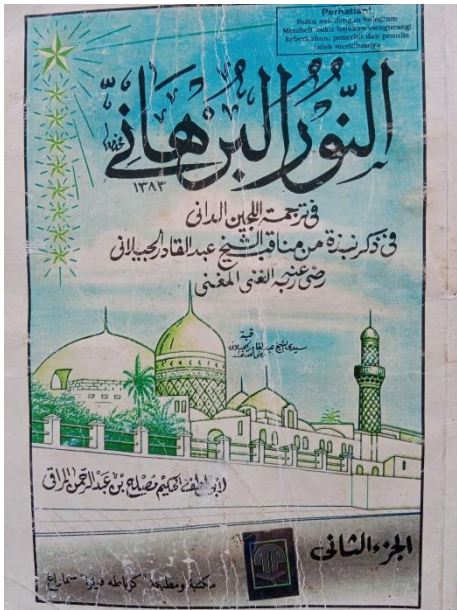 Perhatian!
Buku asli dengan hologram
Membeli buku bajakan mengurangi
keberkahan, penerbit dan penulis
tidak meridhainya
النُّورُ الْبُرْهَانِيُّ
١٣٨٣
فى ترجمة اللجين الدانى
فى ذكر نبذة من مناقب الشيخ عبد القادر الجيلانى
رضى عنه ربه الغنى المغنى
قبة
سيدى الشيخ عبد القادر الجيلانى
رضى الله عنه
لابى لطفى الحكيم مصلح بن عبد الرحمن المراقى
الجزء الثانى
مكتبة ومطبعة "كرياطه فوترا" سماراغ